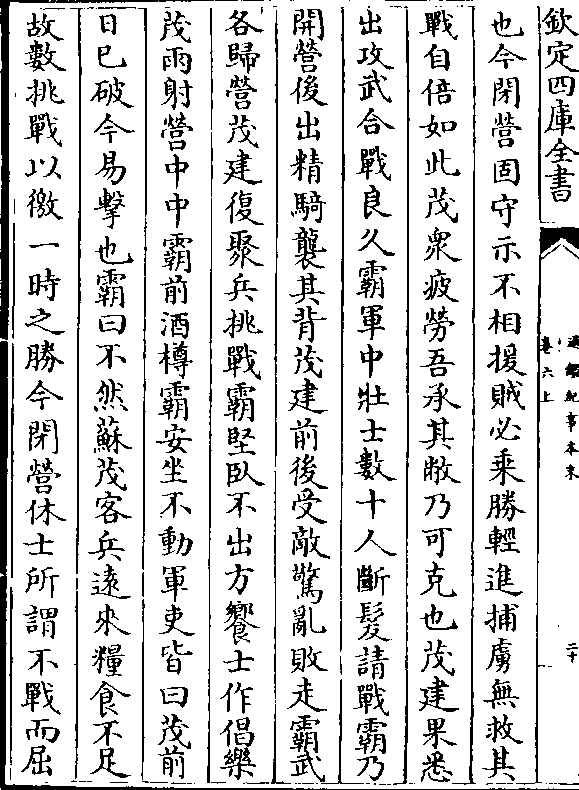 欽定四庫全書
通鑑紀事本末
卷六上
二十
也今閉營固守示不相援賊必乗勝輕進捕虜無救其
戰自倍如此茂衆疲勞吾承其敝乃可克也茂建果悉
出攻武合戰良久霸軍中壯士數十人斷髮請戰霸乃
開營後出精騎襲其背茂建前後受敵驚亂敗走霸武
各歸營茂建復聚兵挑戰霸堅臥不出方饗士作倡樂
茂雨射營中中霸前酒樽霸安坐不動軍吏皆曰茂前
日已破今易擊也霸曰不然蘇茂客兵遠來糧食不足
故數挑戰以徼一時之勝今閉營休士所謂不戰而屈